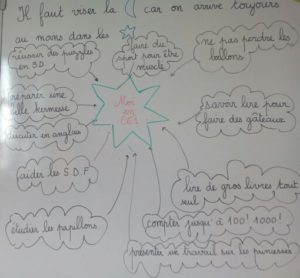 Il faut viser la
car on arrive toujours
au moins dans les
réussir des puzzles
en 3D
faire du
sport pour être
musclé
ne pas perdre les
ballons
préparer une
belle kermesse
Moi
en
CE1
savoir lire pour
faire des gâteaux
discuter en anglais
aider les S.D.F
lire de gros livres tout
seul
compter jusqu'à 100! 1000!
étudier les papillons
présenter un travail sur les princesses